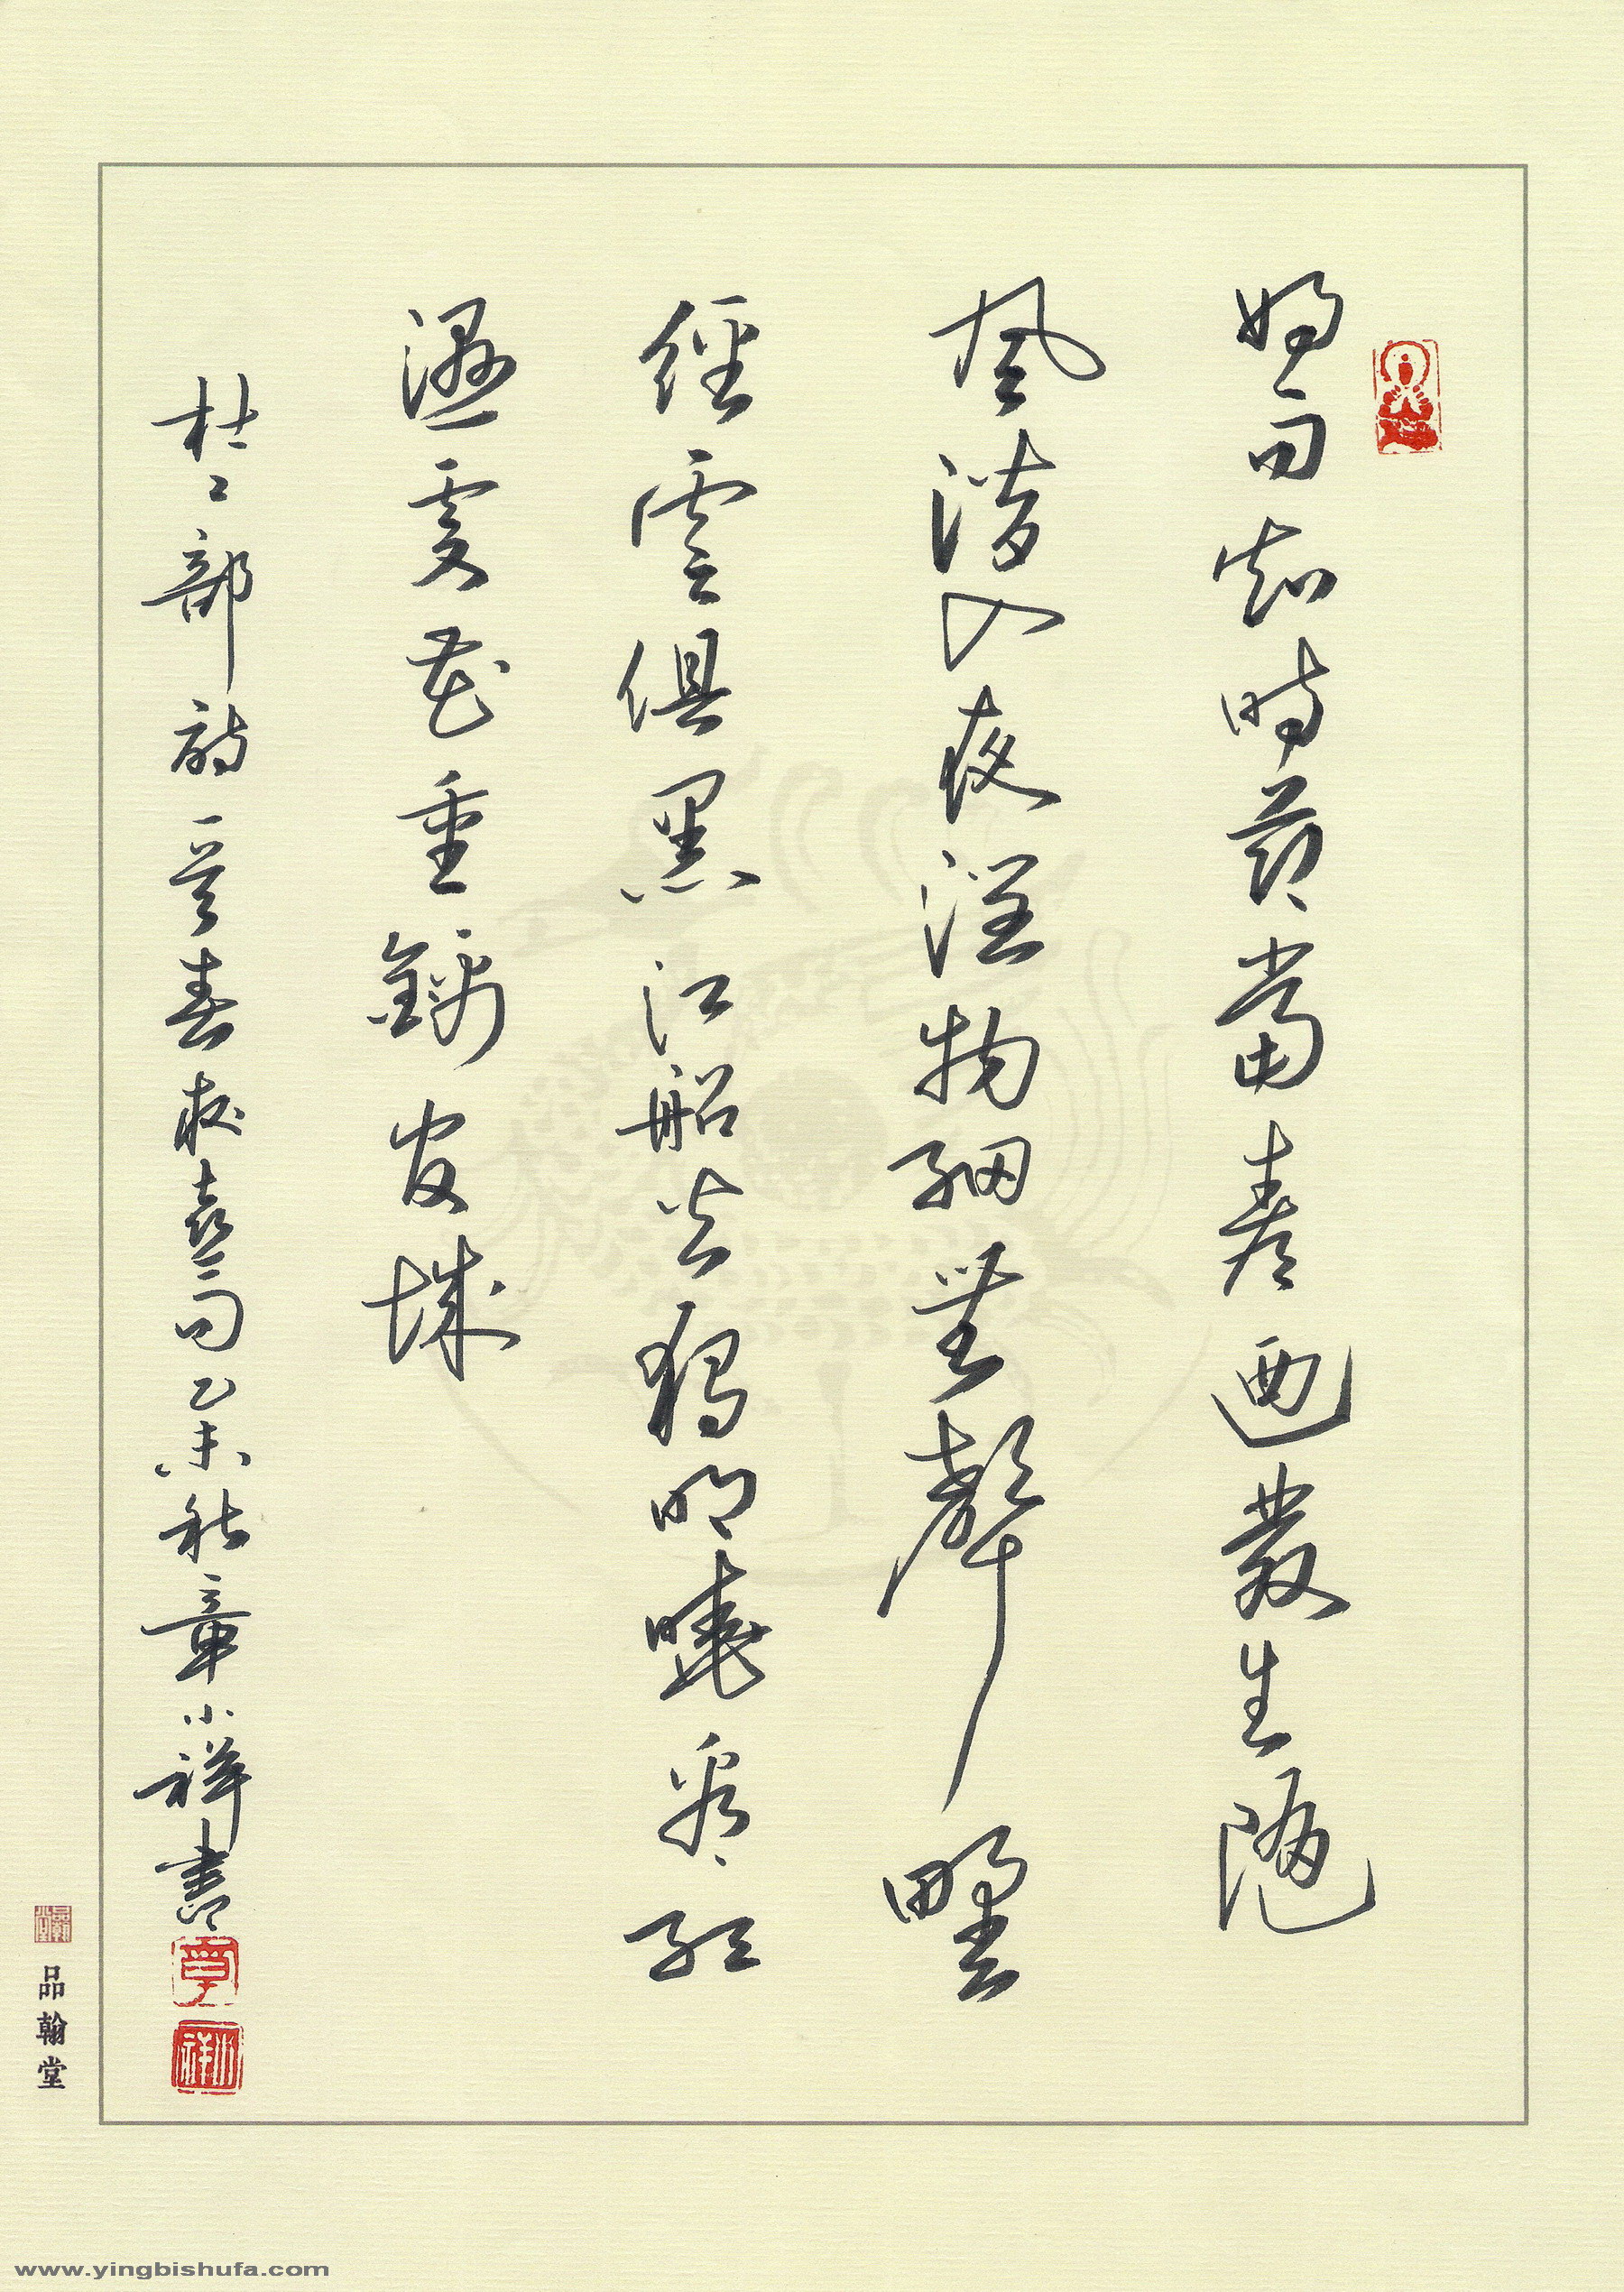 好雨知時節當春迺發生隨
風潛入夜潤物細無聲野
徑雲俱黑江船火獨明曉看紅
濕處花重錦官城
杜工部詩一首春夜喜雨乙未秋章小祥書
章
小祥
品翰堂
品翰堂
www.yingbishufa.com